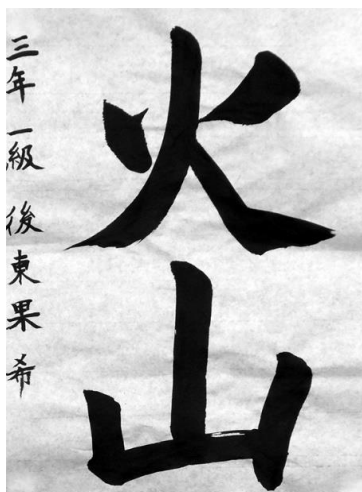 火山
三年 一級 後東果希